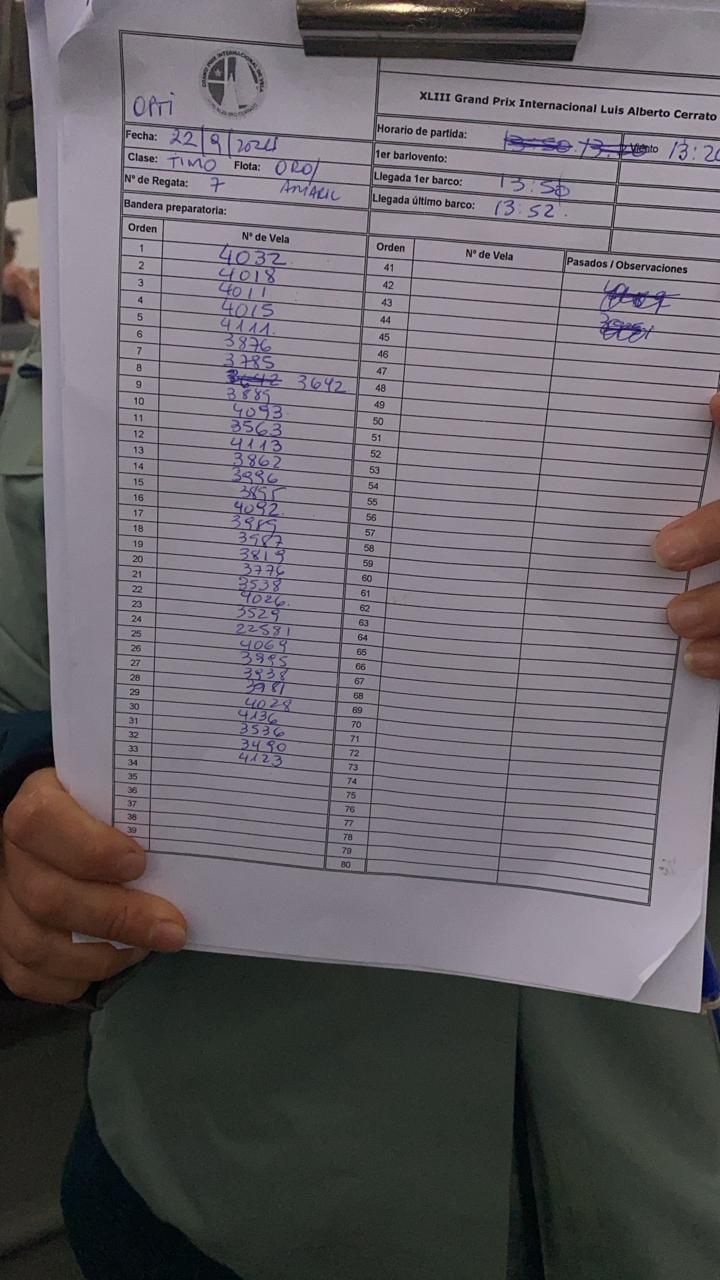 GRAND PRIX INTERNACIONAL DE VELA
OPTI
XLIII Grand Prix Internacional Luis Alberto Cerrato
Fecha: 22/9/2024
Clase: TIMO Flota: ORO/
AMARIL
Nº de Regata: 7
Bandera preparatoria:
Horario de partida: 13:50 Viento 13:20
1er barlovento:
Llegada 1er barco: 13:50
Llegada último barco: 13:52.
Orden Nº de Vela
1 4032
2 4018
3 4011
4 4015
5 4111
6 3876
7 3785
8 3642 3642
9 3889
10 4093
11 3563
12 4113
13 3862
14 3996
15 3895
16 4092
17 3989
18 3987
19 3819
20 3776
21 3538
22 4026
23 3529
24 22581
25 4069
26 3995
27 3938
28 3981
29 4028
30 4136
31 3536
32 3490
33 4123
34
35
36
37
38
39
Orden Nº de Vela Pasados / Observaciones
41
42
43
44
45
46
47
48
49
50
51
52
53
54
55
56
57
58
59
60
61
62
63
64
65
66
67
68
69
70
71
72
73
74
75
76
77
78
79
80